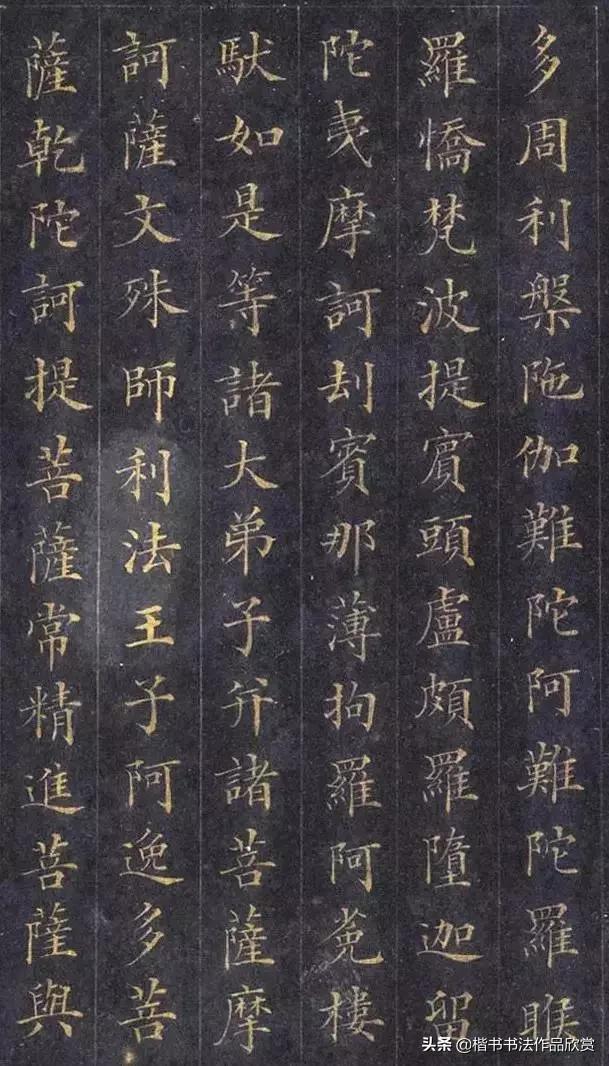 多周利槃陁伽難陀阿難陀羅睺
羅憍梵波提賓頭盧頗羅墮迦留
陀夷摩訶刦賓那薄拘羅阿㝹樓
馱如是等諸大弟子并諸菩薩摩
訶薩文殊師利法王子阿逸多菩
薩乾陀訶提菩薩常精進菩薩與
头条 @楷书书法作品欣赏